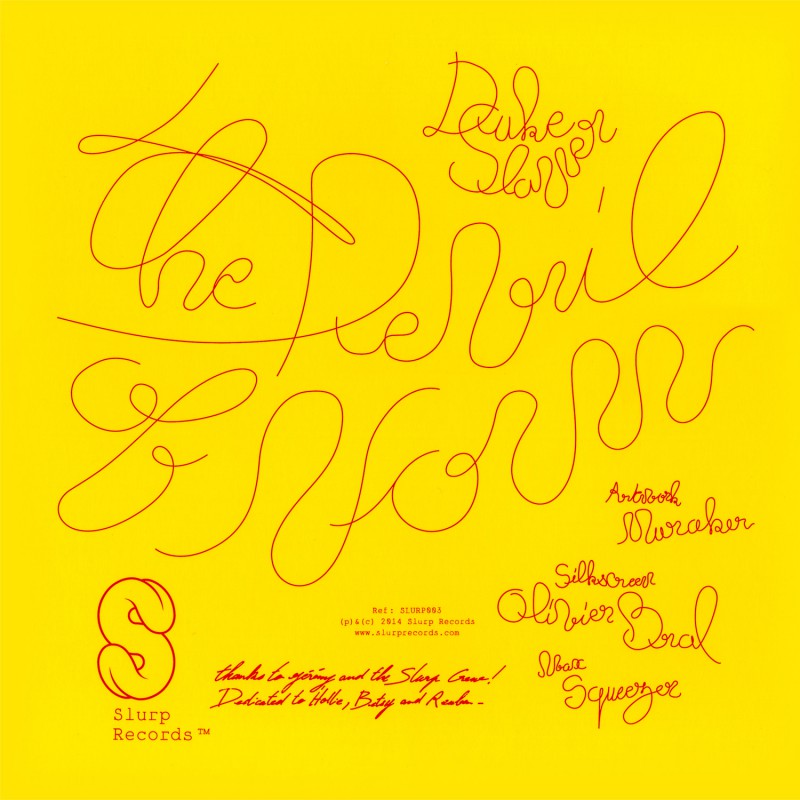 the Devil
& Norm
Artwork
Muraker
Silkscreen
Olivier Bral
Squeezer
Ref: SLURP003
(p)&(c) 2014 Slurp Records
www.slurprecords.com
thanks to Jérémy and the Slurp Crew!
Dedicated to Betsy and
Slurp
Records™